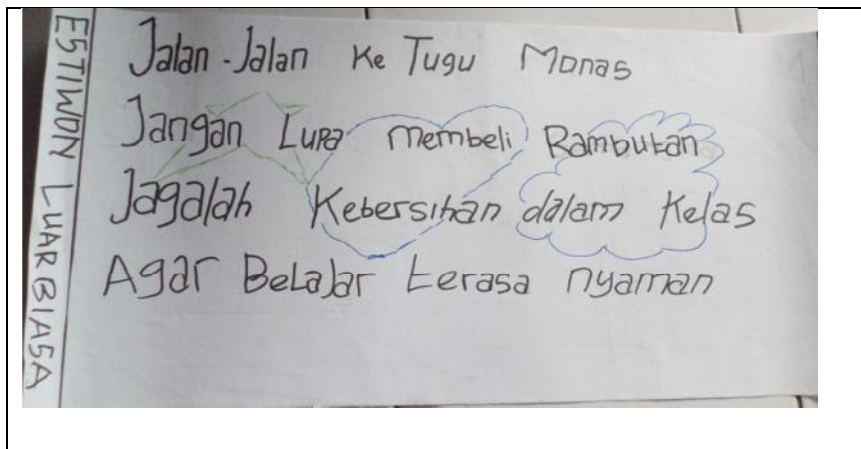 ESTIWON LUAR BIASA
Jalan-Jalan Ke Tugu Monas
Jangan Lupa Membeli Rambutan
Jagalah Kebersihan dalam Kelas
Agar Belajar terasa nyaman